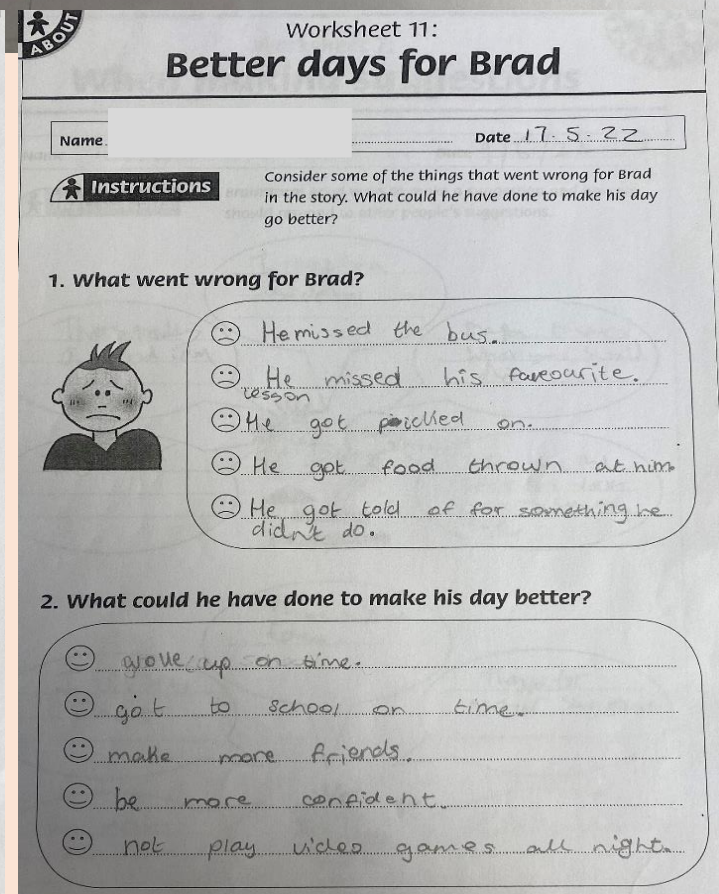 ABOUT
Worksheet 11:
Better days for Brad
Name
Date 17.5.22
Instructions
Consider some of the things that went wrong for Brad
in the story. What could he have done to make his day
go better?
1. What went wrong for Brad?
He missed the bus.
He missed his faveourite.
lesson
He got picked on.
He got food thrown at him
He got told of for something he
didn't do.
2. What could he have done to make his day better?
up on time.
got to school on time.
make more friends.
be more confident.
not play video games all night.